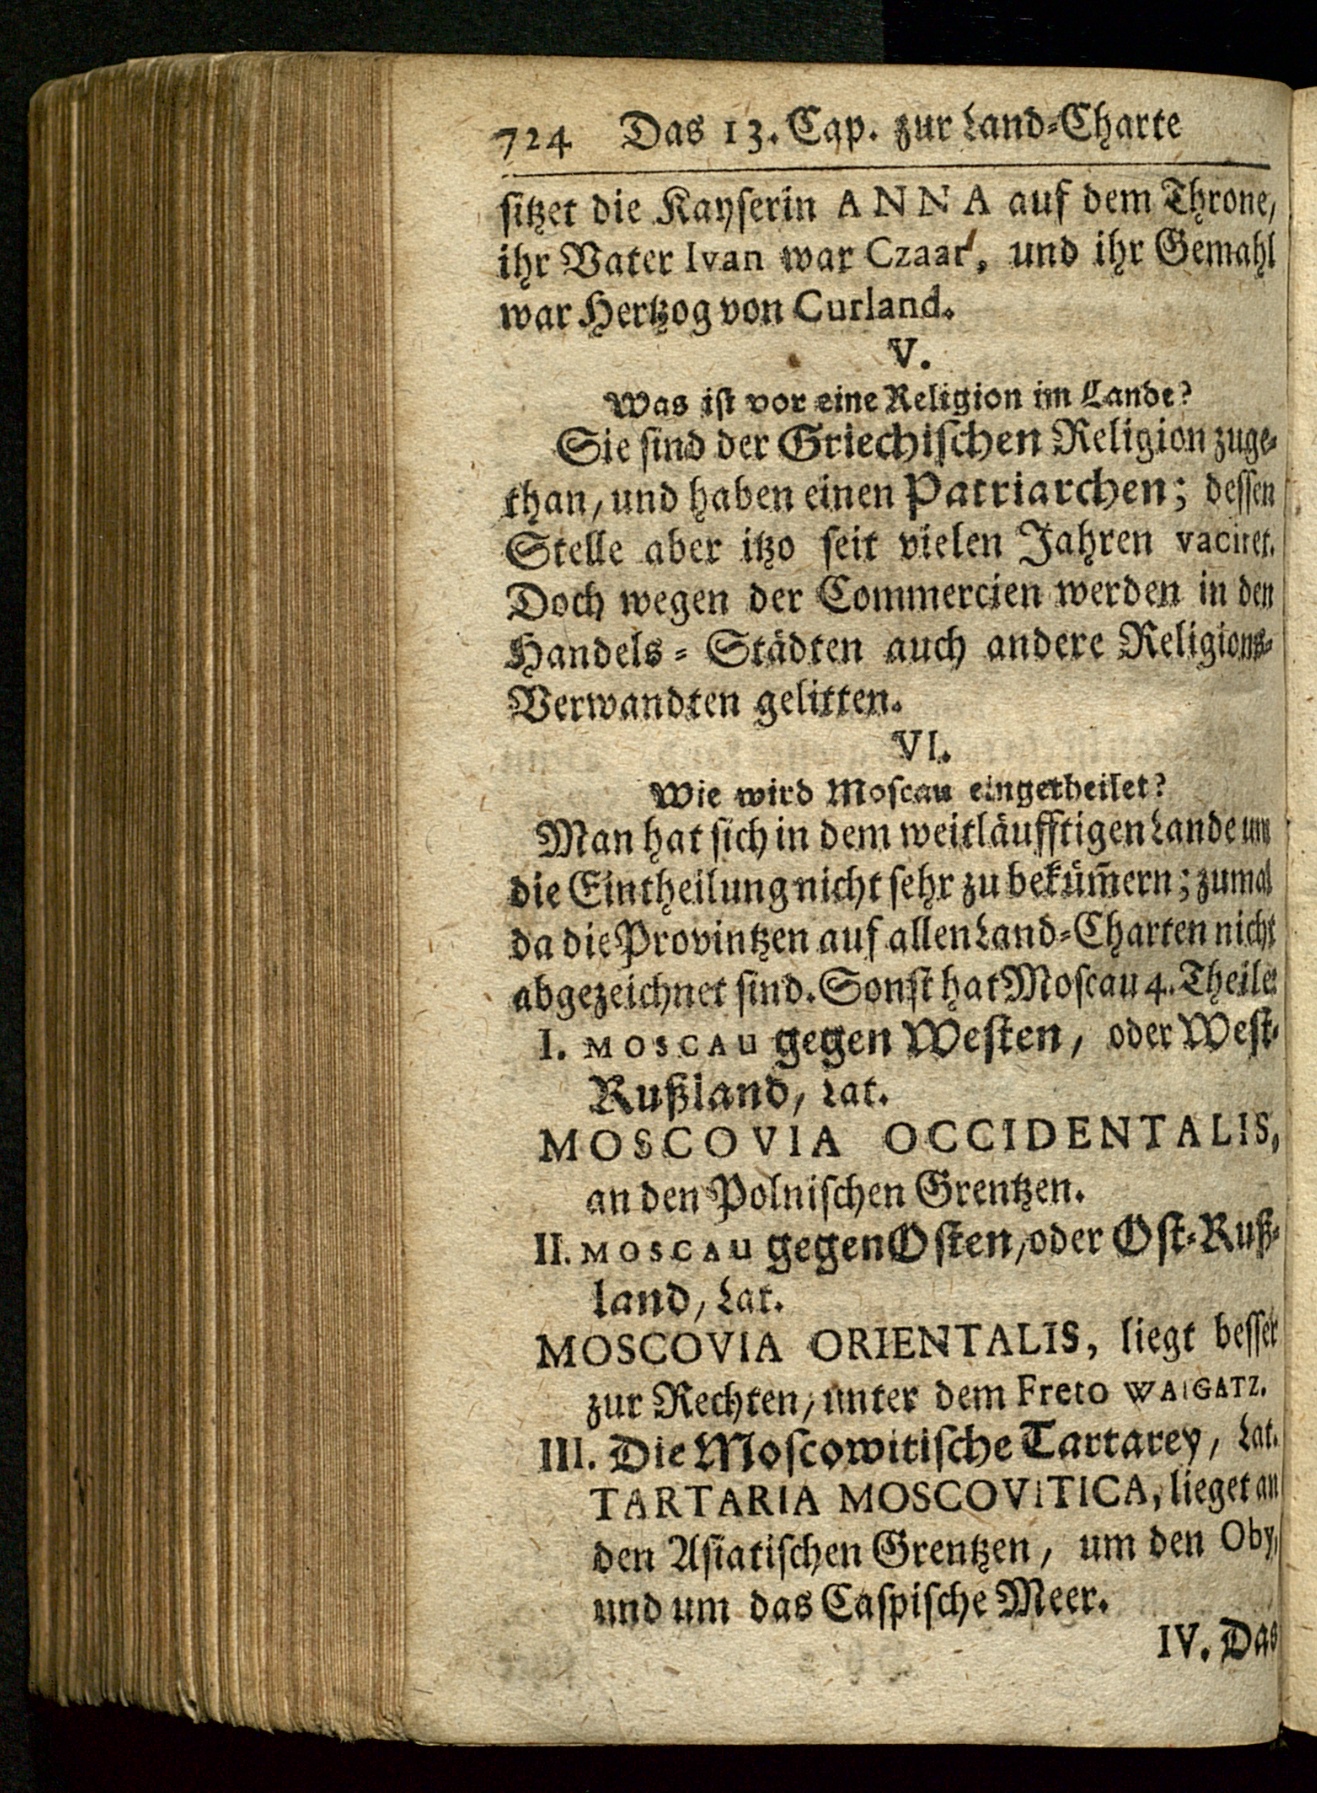 724 Das 13. Cap. zur Land-Charte
sitzet die Kayserin ANNA auf dem Throne,
ihr Vater Ivan war Czaar, und ihr Gemahl
war Hertzog von Curland.
V.
Was ist vor eine Religion im Lande?
Sie sind der Griechischen Religion zuge-
than, und haben einen Patriarchen; dessen
Stelle aber itzo seit vielen Jahren vaciret.
Doch wegen der Commercien werden in den
Handels-Städten auch andere Religions-
Verwandten gelitten.
VI.
Wie wird Moscau eingetheilet?
Man hat sich in dem weitläufftigen Lande um
die Eintheilung nicht sehr zu beküm̄ern; zumal
da die Provintzen auf allen Land-Charten nicht
abgezeichnet sind. Sonst hat Moscau 4. Theile:
I. MOSCAU gegen Westen, oder West-
Rußland, Lat.
MOSCOVIA OCCIDENTALIS,
an den Polnischen Grentzen.
II. MOSCAU gegen Osten, oder Ost-Ruß-
land, Lat.
MOSCOVIA ORIENTALIS, liegt besser
zur Rechten, unter dem Freto WAIGATZ.
III. Die Moscowitische Tartarey, Lat.
TARTARIA MOSCOVITICA, lieget an
den Asiatischen Grentzen, um den Oby,
und um das Caspische Meer.
IV. Das